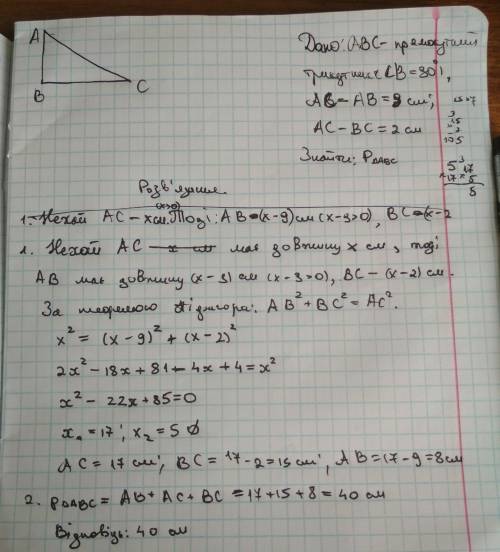 A
B
C
Дано: ABC - прямокутний
трикутник (∠B=90°),
AC - AB = 9 см;
AC - BC = 2 см
Знайти: P△ABC
15 · 7
105
Розв'язання.
1. Нехай AC - x см (x>0). Тоді: AB = (x-9) см (x-9>0), BC = (x-2
1. Нехай AC - x см має довжину x см, тоді
AB має довжину (x-9) см (x-9>0), BC - (x-2) см.
За теоремою Піфагора: AB² + BC² = AC².
x² = (x-9)² + (x-2)²
2x² - 18x + 81 - 4x + 4 = x²
x² - 22x + 85 = 0
x₁ = 17; x₂ = 5 ∅
AC = 17 см; BC = 17 - 2 = 15 см; AB = 17 - 9 = 8 см
2. P△ABC = AB + AC + BC = 17 + 15 + 8 = 40 см
Відповідь: 40 см